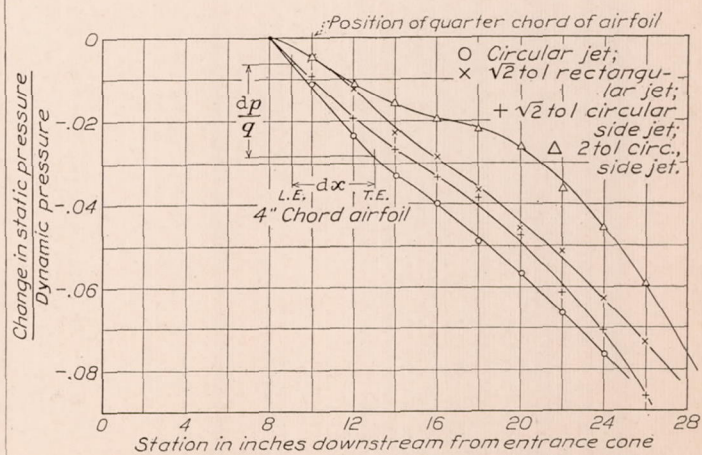 Position of quarter chord of airfoil
O Circular jet;
× √2 to 1 rectangu-
lar jet;
+ √2 to 1 circular
side jet;
Δ 2 to 1 circ.,
side jet.
dp
q
L.E. dx T.E.
4" Chord airfoil
0
-.02
-.04
-.06
-.08
Change in static pressure
Dynamic pressure
0 4 8 12 16 20 24 28
Station in inches downstream from entrance cone